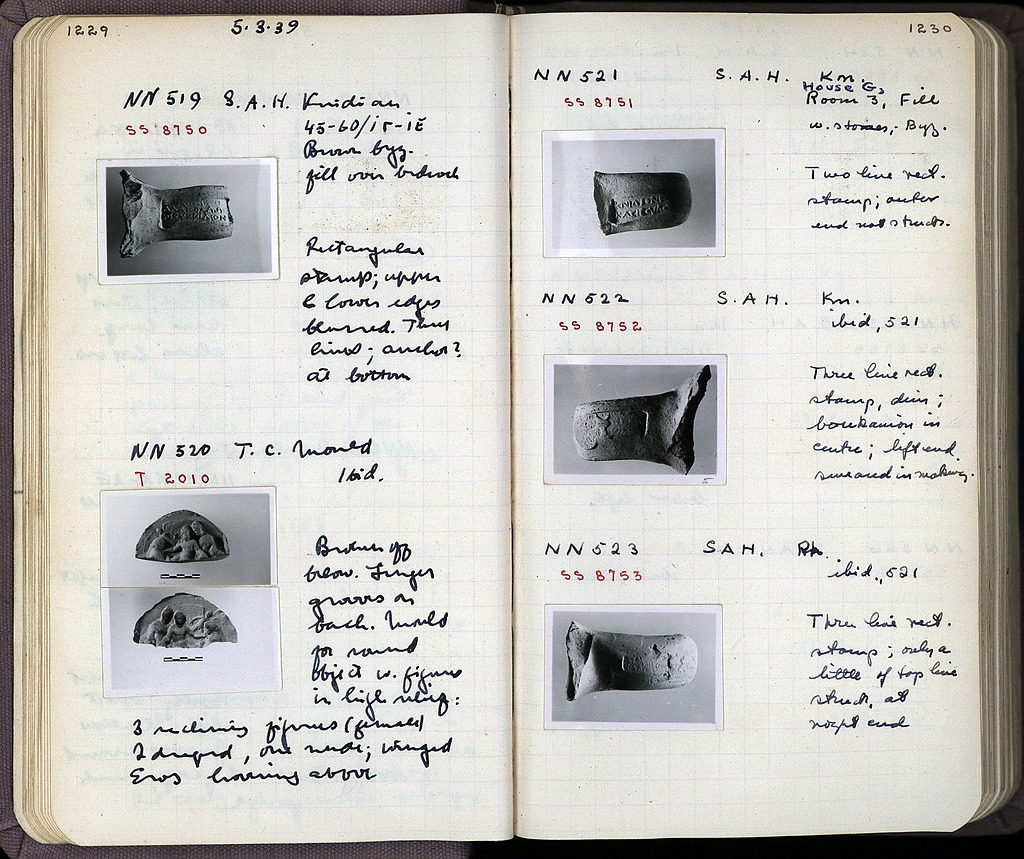 1229
5·3·39
NN 519 S.A.H. Knidian
SS 8750
45-60/ΙΓ-ΙΕ
Brown byz.
fill over bedrock
Rectangular
stamp; upper
& lower edges
blurred. Three
lines; anchor?
at bottom
NN 520 T.C. Mould
T 2010
Ibid.
Broken off
below. Finger
grooves on
back. Mould
for round
object w. figures
in high relief:
3 reclining figures (female)
2 draped, one nude; winged
Eros hovering above
1230
NN 521 S.A.H. Kn.
SS 8751
House G,
Room 3, Fill
w. stones, - Byz.
Two line rect.
stamp; outer
end not struck.
NN 522 S.A.H. Kn.
SS 8752
ibid, 521
Three line rect.
stamp, dim;
boukranion in
centre; left end
smeared in making.
NN 523 SAH. Rh.
SS 8753
ibid., 521
Three line rect.
stamp; only a
little of top line
struck, at
right end